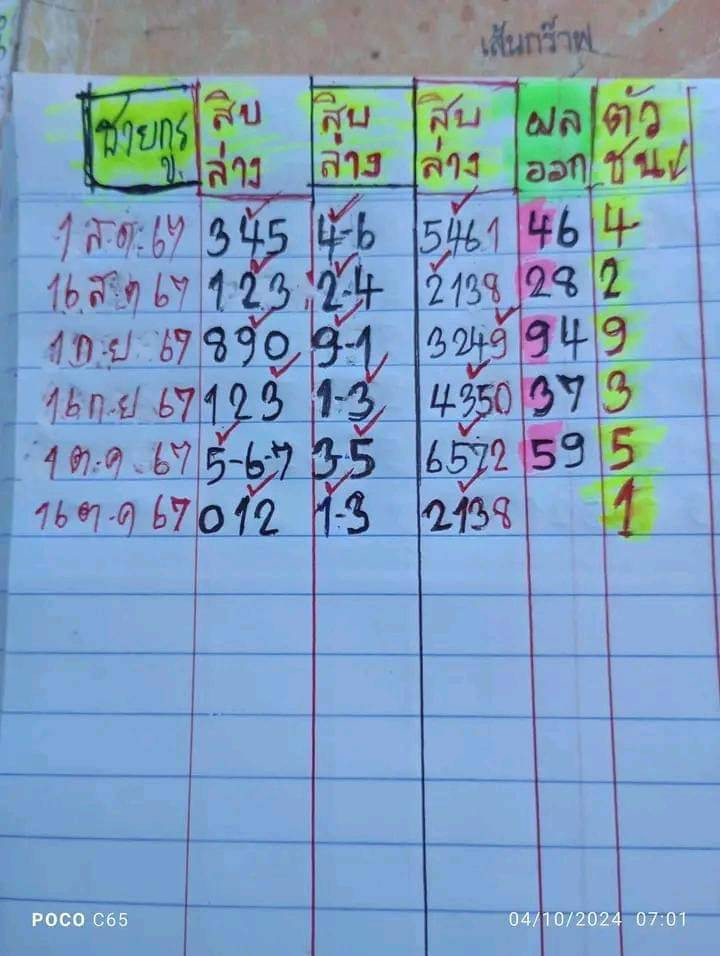 เส้นกร๊าฟ
สายกรู สิบ สิบ สิบ ผล ตัว
ล่าง ล่าง ล่าง ออก ชน
1 ส.ค. 67 345 4-6 5461 46 4
16 ส ค 67 123 2-4 2138 28 2
1 ก.ย 67 890 9-1 3249 94 9
16 ก.ย 67 123 1-3 4350 37 3
1 ต.ค. 67 5-6-7 3-5 6572 59 5
16 ต.ค 67 012 1-3 2138 1
POCO C65 04/10/2024 07:01